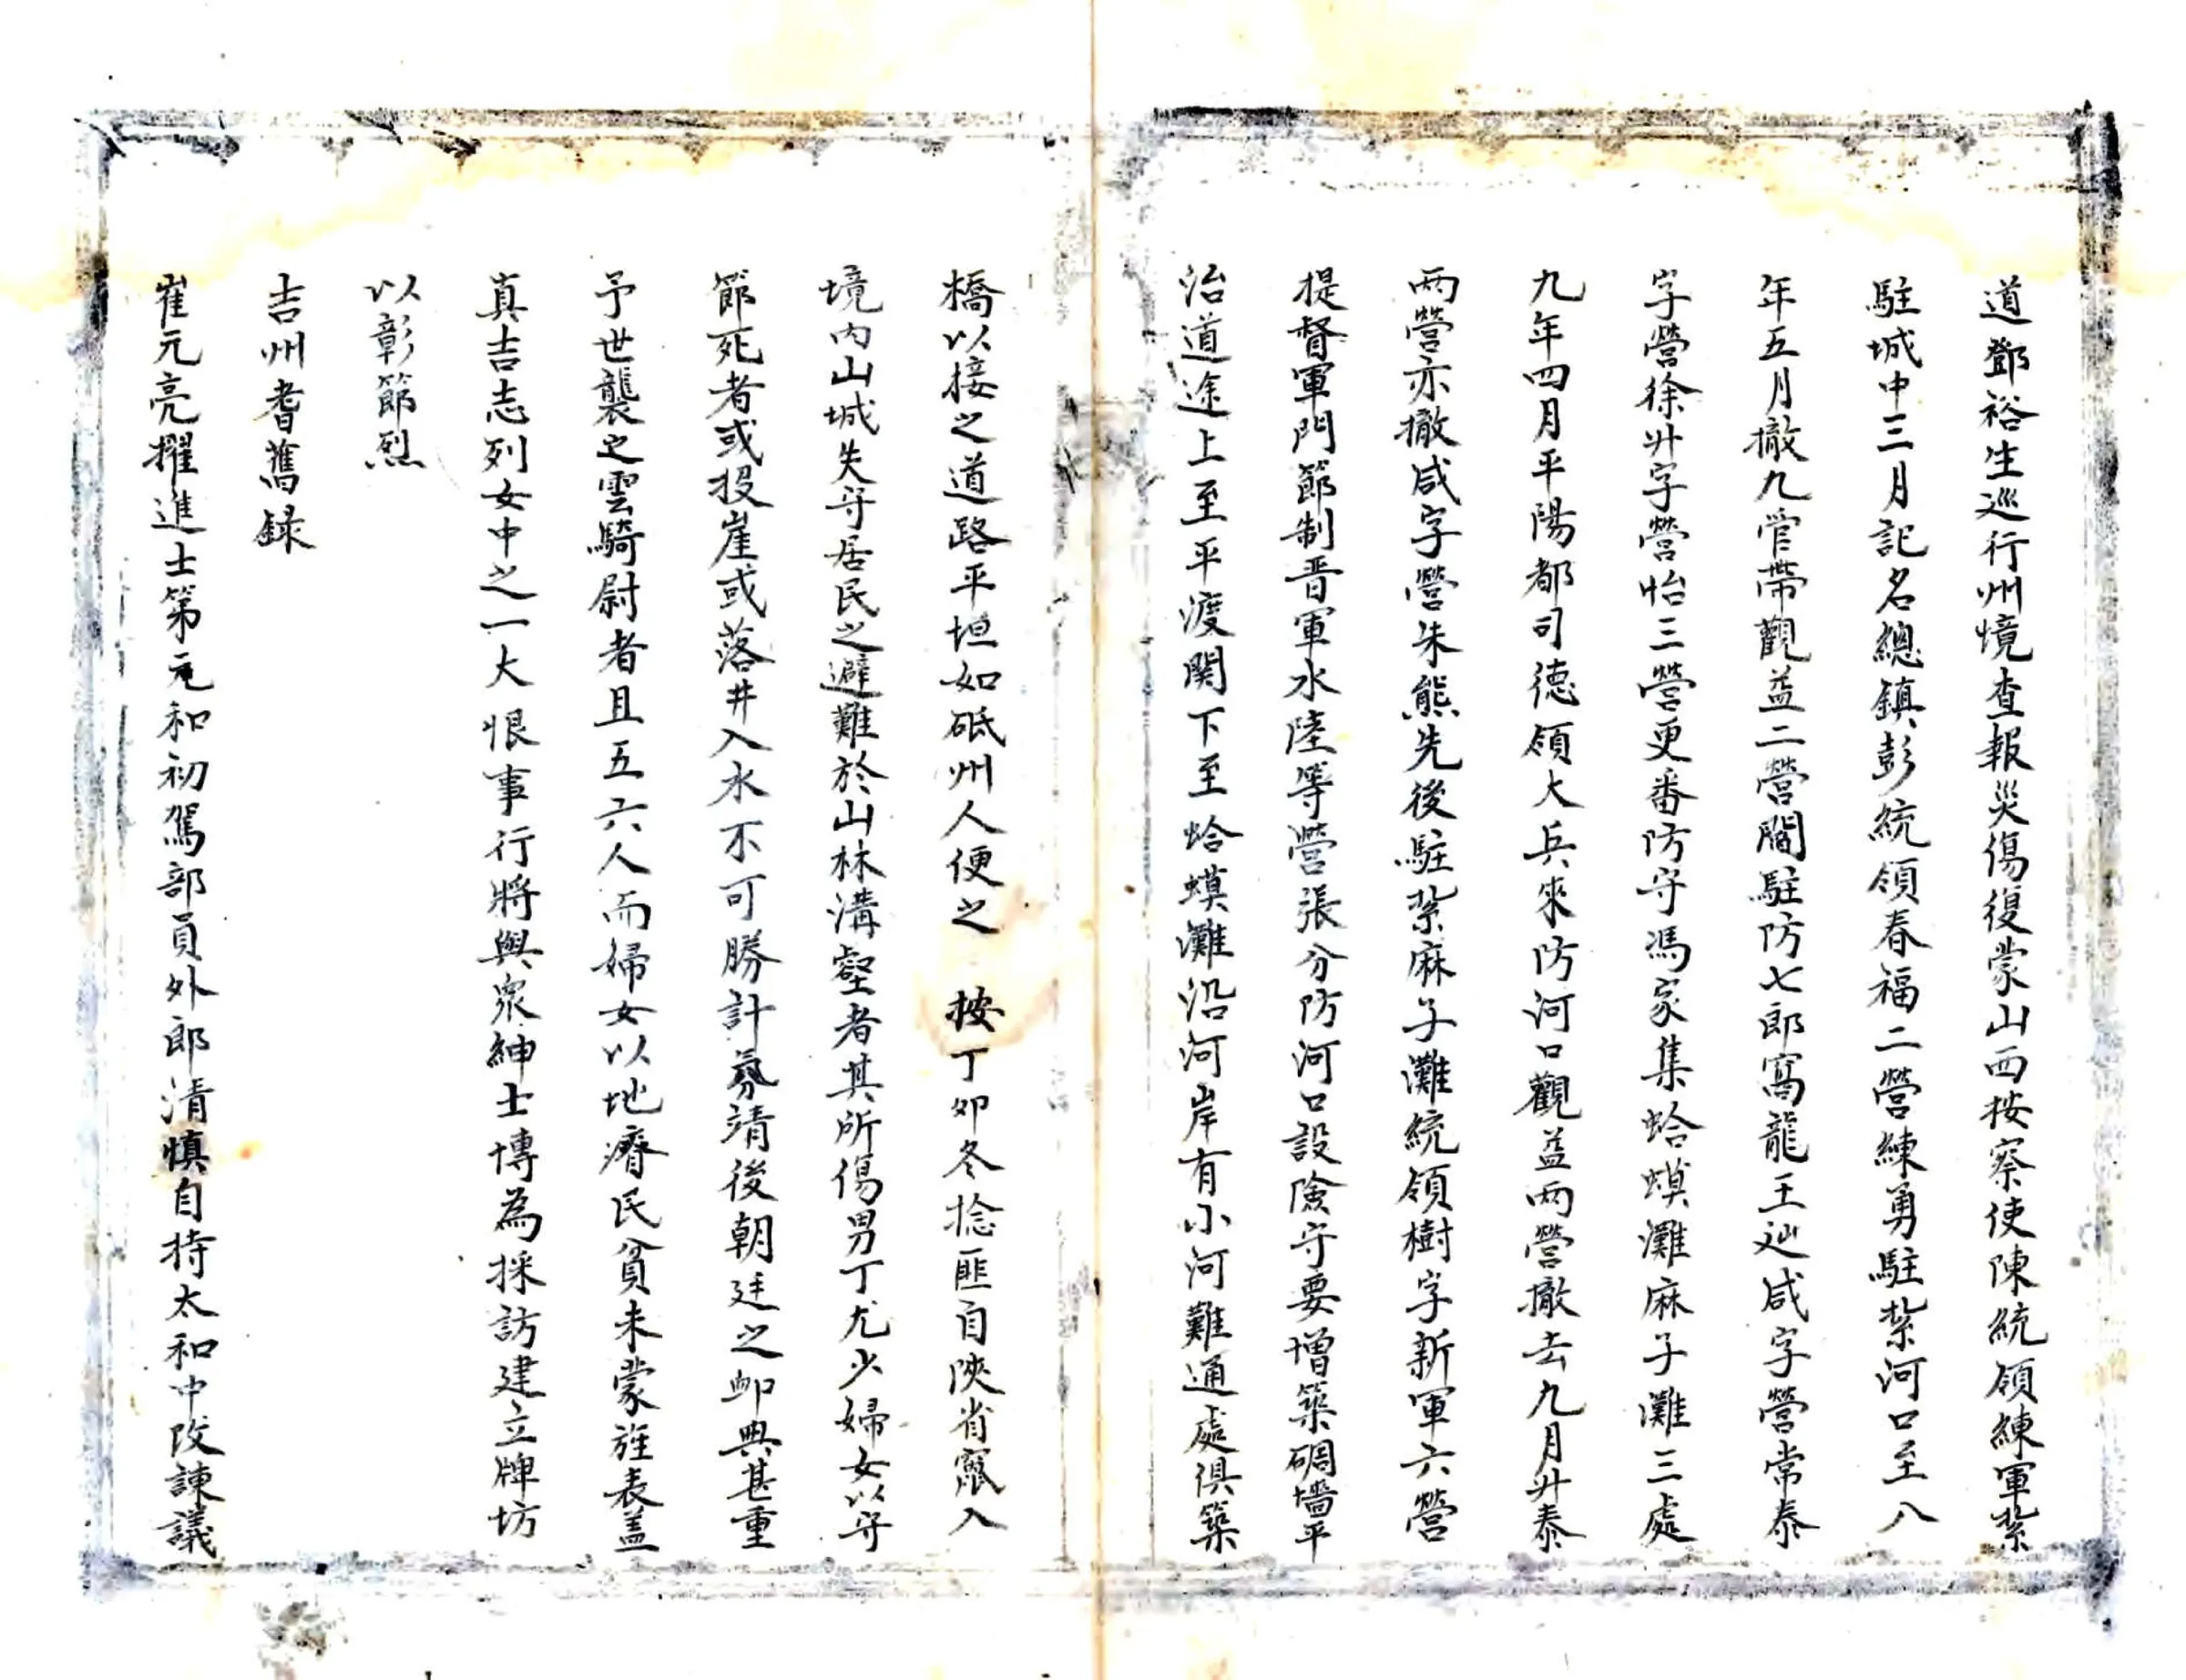 道鄧裕生巡行州境查報災傷復蒙山西按察使陳統領練軍紮
駐城中三月記名總鎮彭統領春福二營練勇駐紮河口至八
年五月撤九管帶觀益二營關駐防七郎窩龍王辿咸字營常泰
字營徐升字營怡三營更番防守馮家集蛤蟆灘麻子灘三處
九年四月平陽都司德領大兵來防河口觀益两營撤去九月升泰
两營亦撤咸字營朱熊先後駐紮麻子灘統領樹字新軍六營
提督軍門節制晋軍水陸等營張分防河口設險守要增築碉墻平
治道途上至平渡関下至蛤蟆灘沿河岸有小河難通處俱築
橋以接之道路平坦如砥州人便之 按丁卯冬捻匪自陝省竄入
境内山城失守居民之避難於山林溝壑者其所傷男丁尤少婦女以守
節死者或投崖或落井入水不可勝計氛靖後朝廷之卹典甚重
予世襲之雲騎尉者且五六人而婦女以地瘠民貧未蒙旌表盖
真吉志列女中之一大恨事行將與衆紳士博為採訪建立牌坊
以彰節烈
吉州耆舊録
崔元亮擢進士第元和初駕部員外郎清慎自持太和中改諫議